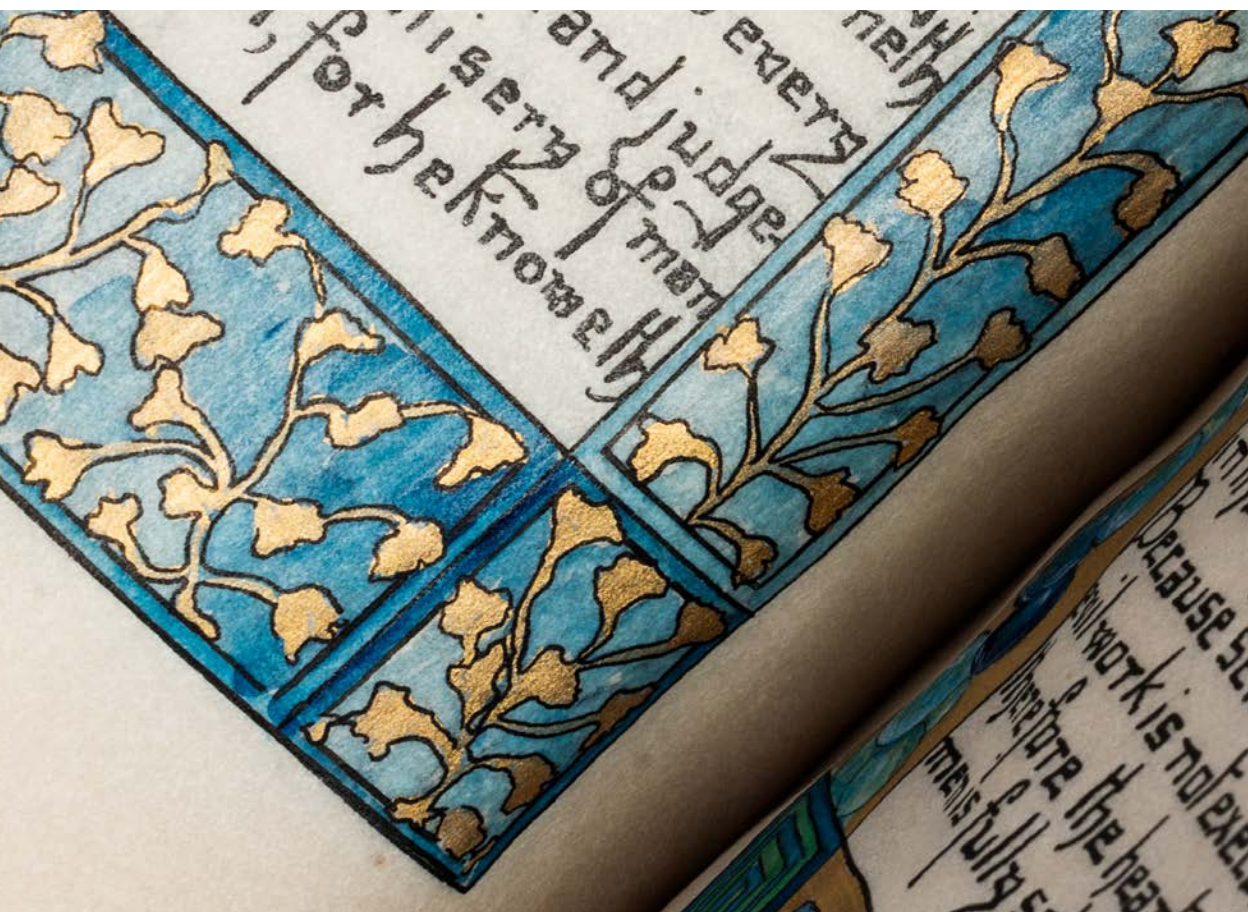 every
and judge
misery of man
, for he knoweth
Because
work is not
therefore the
men is fully